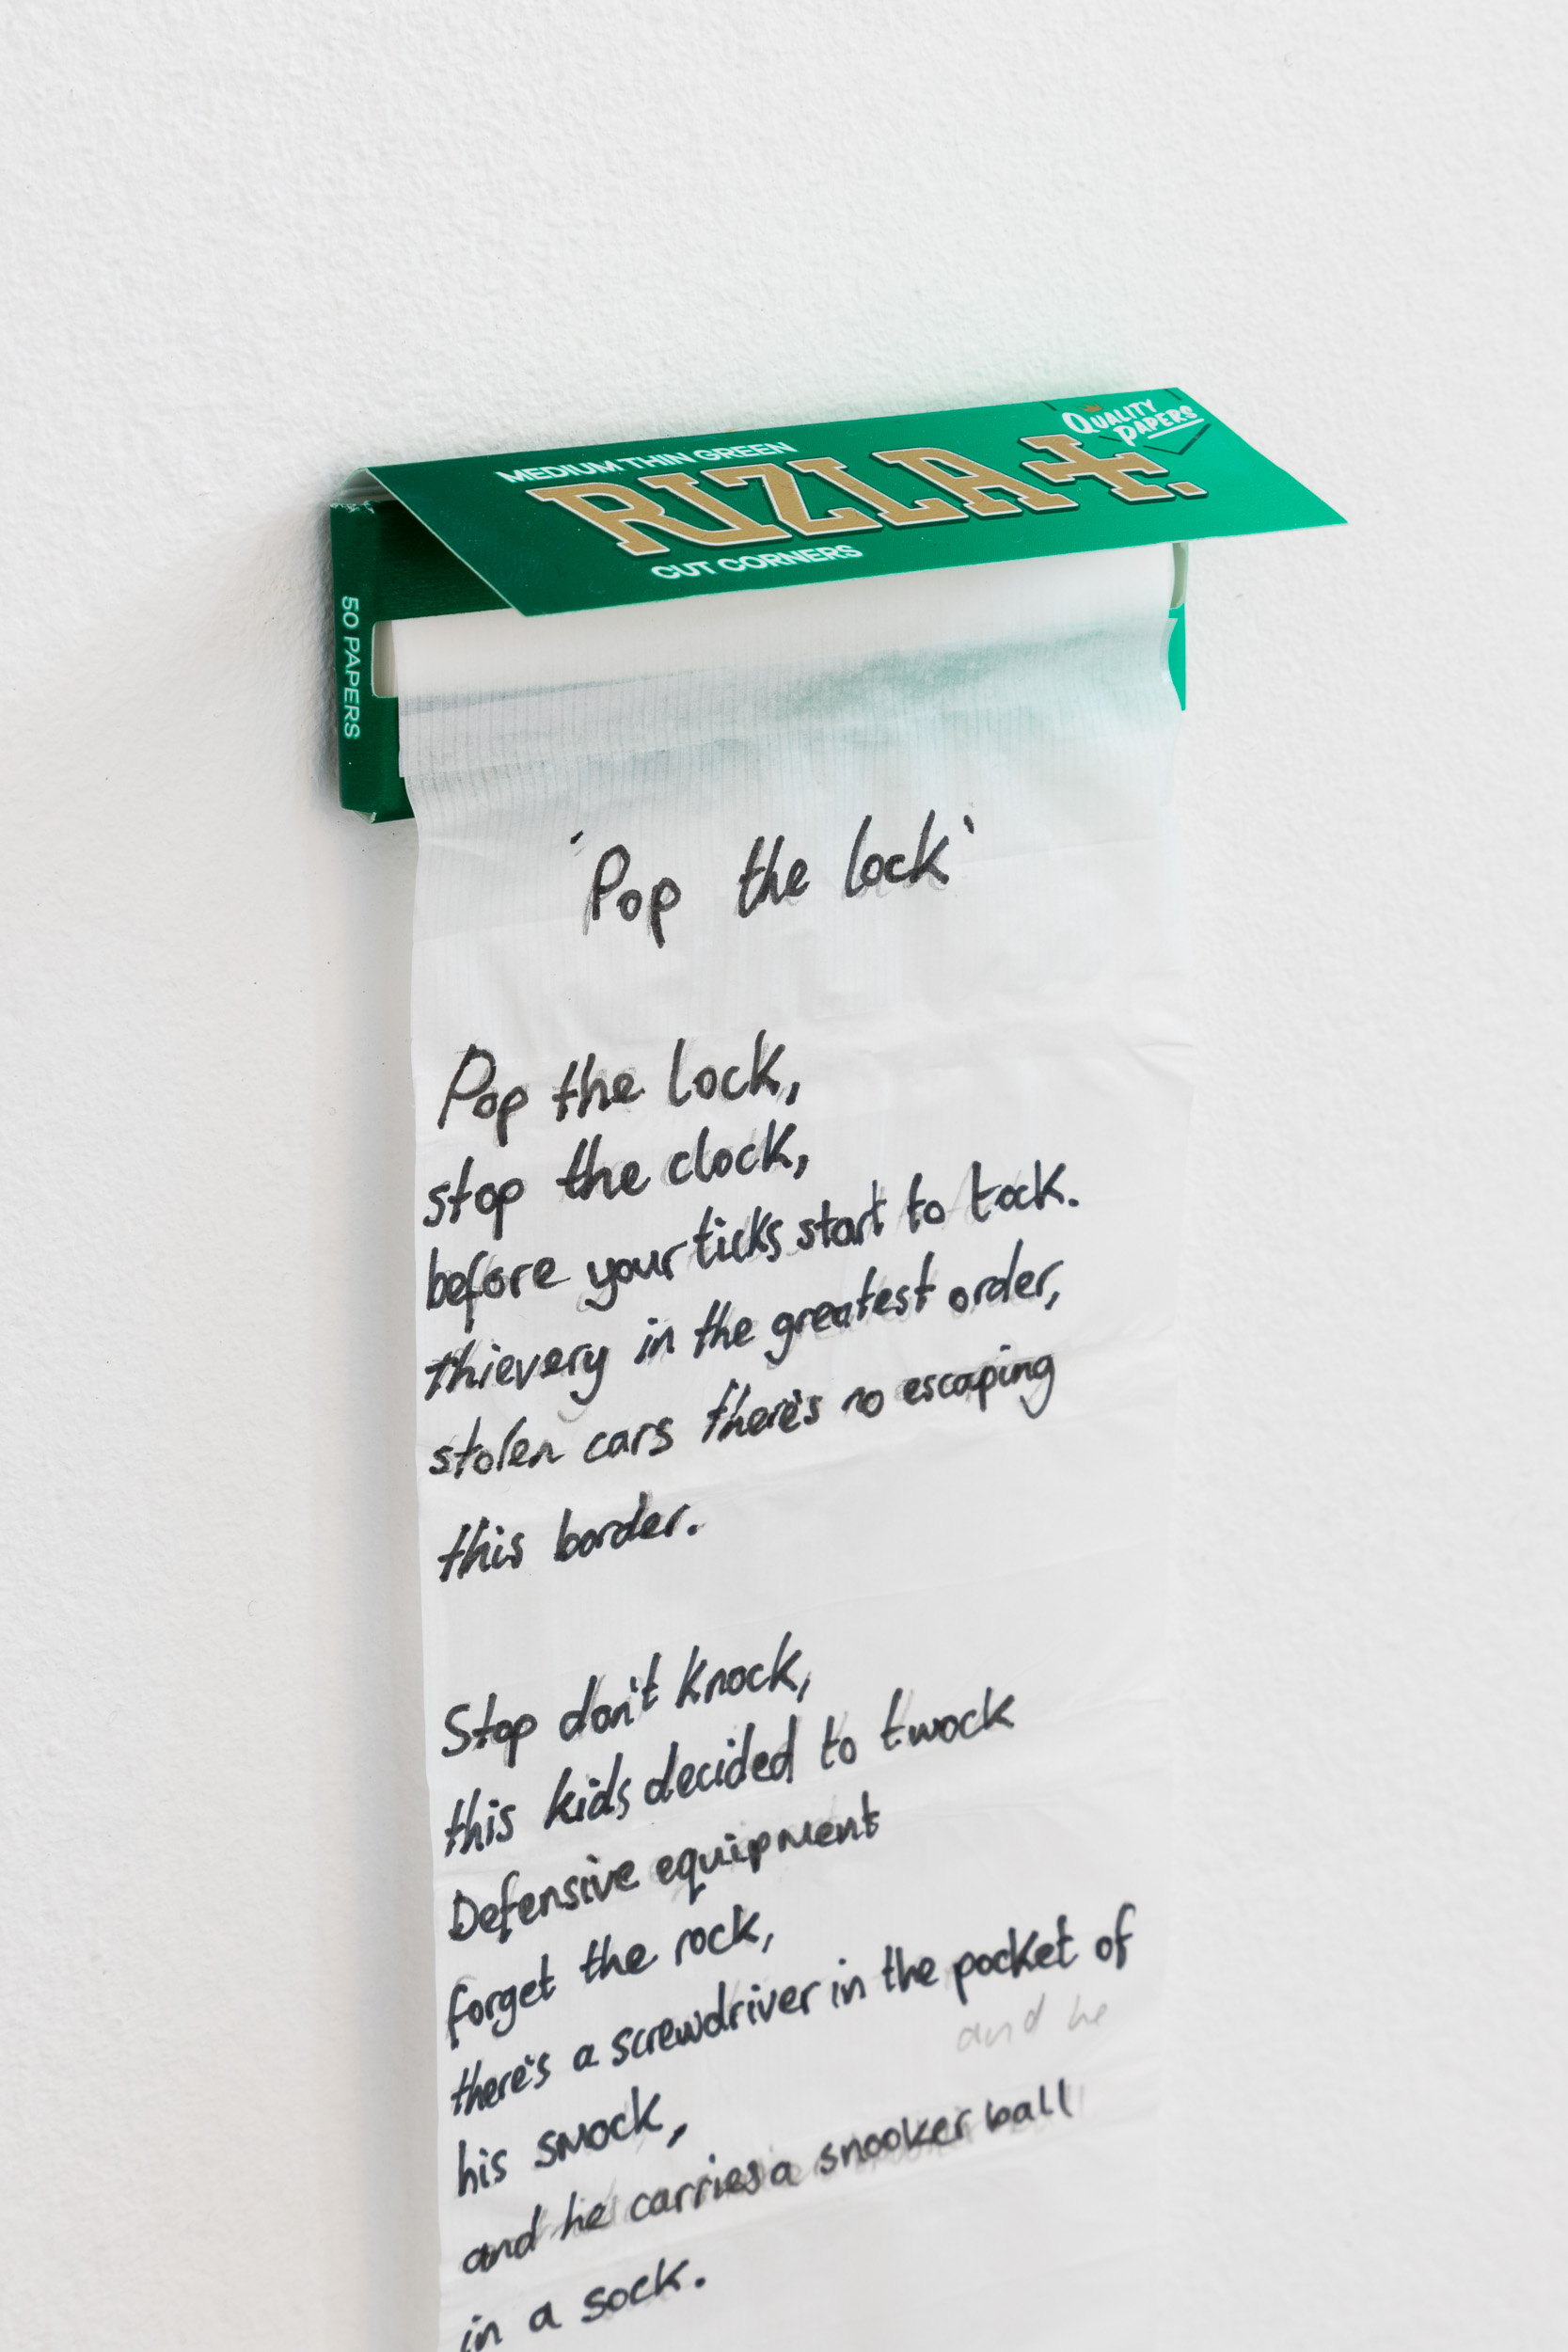 QUALITY
PAPERS
MEDIUM THIN GREEN
RIZLA+.
CUT CORNERS
50 PAPERS
'Pop the lock'
Pop the lock,
stop the clock,
before your ticks start to tock.
thievery in the greatest order,
stolen cars there's no escaping
this border.
Stop don't knock,
this kids decided to twock
Defensive equipment
forget the rock,
there's a screwdriver in the pocket of
and he
his smock,
and he carries a snooker ball
in a sock.